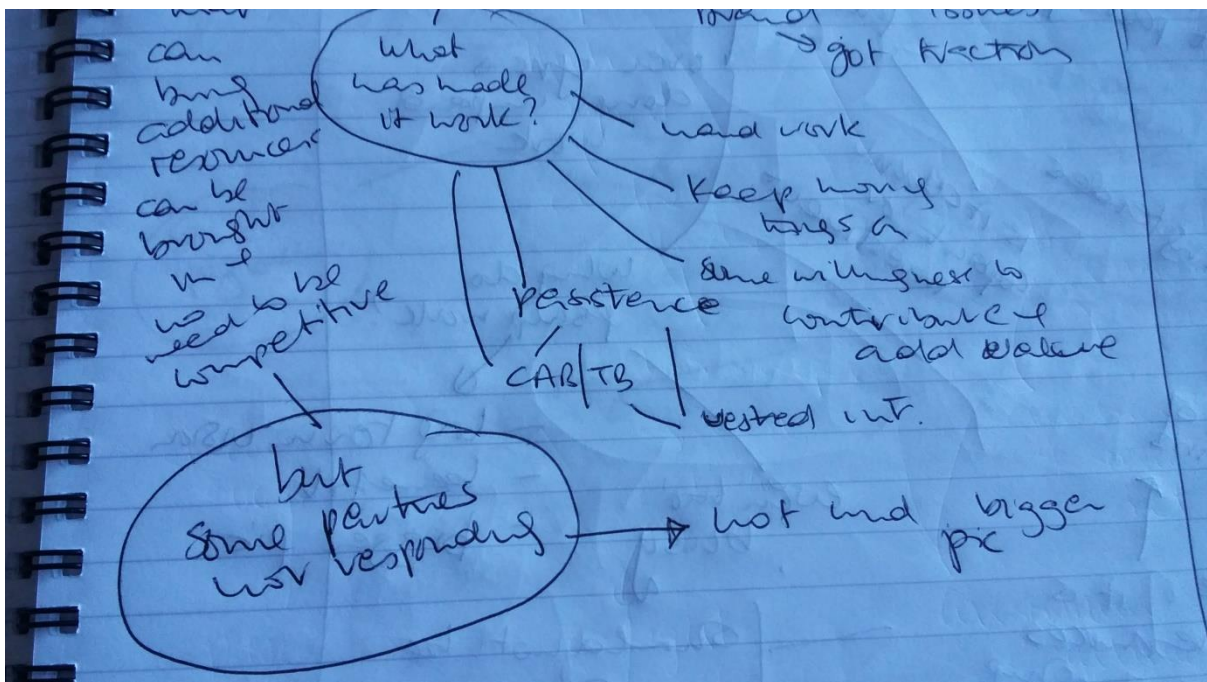 can
bring
additional
resources
can be
brought
in +
no need to be
competitive
what
has made
it work?
round issues
→ got traction
hard work
keep moving
things on
some willingness to
contribute +
add value
persistence
CAB/TB
vested int.
but
some partners
not responding
not und bigger
pic